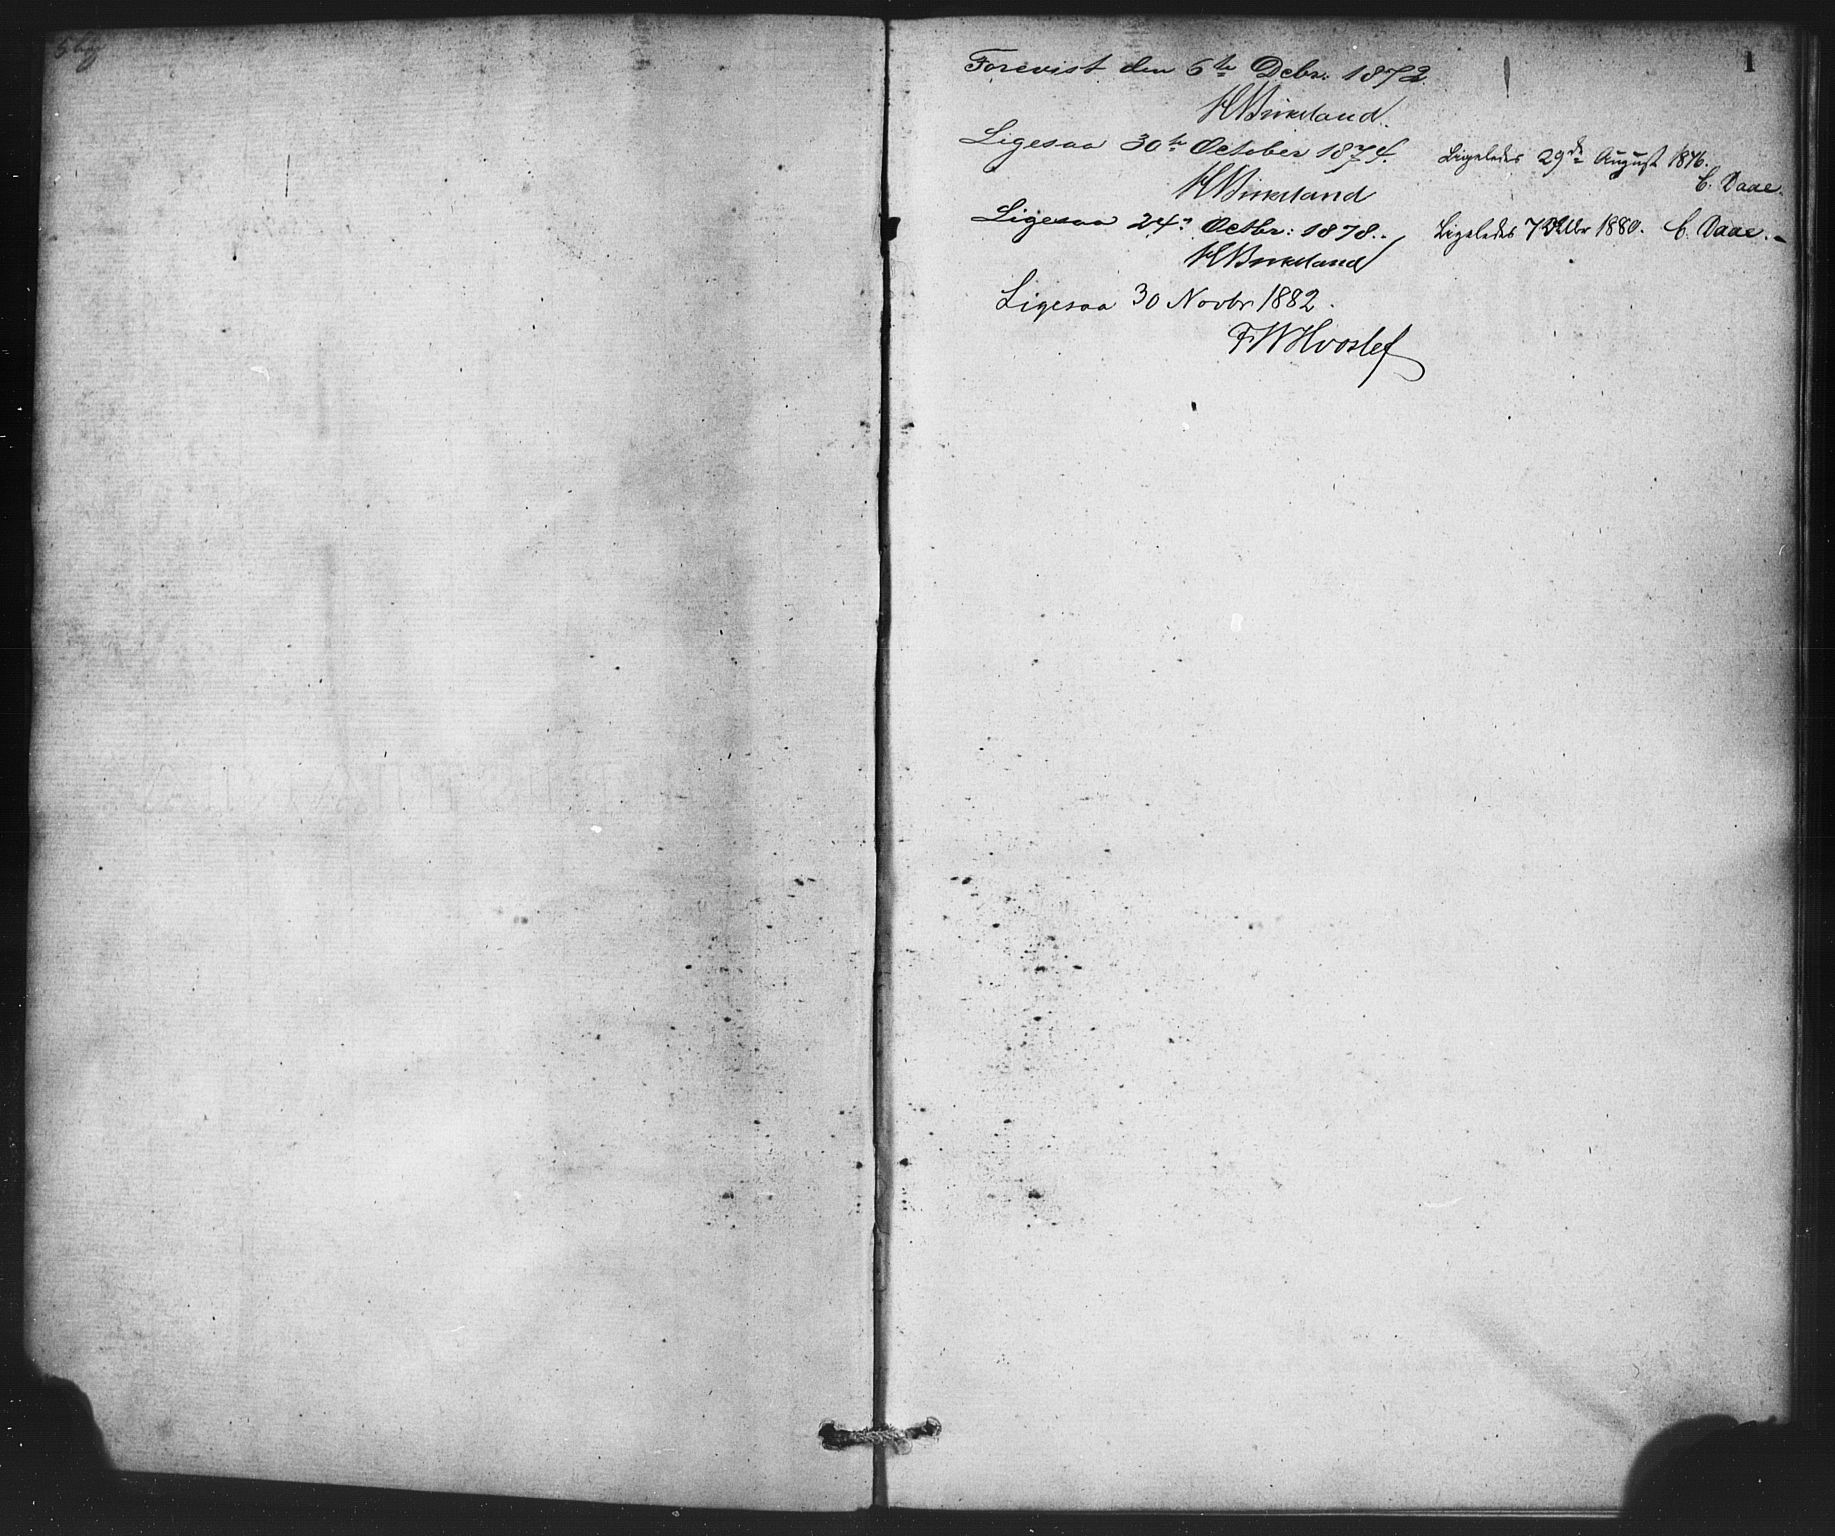 1
Forevist den 6te Debr. 1872.
HBirkeland.
Ligesaa 30te October 1874.
HBirkeland
Ligesaa 24de Octbr: 1878.
HBirkeland
Ligesaa 30 Novbr 1882.
FWHvoslef
Ligeledes 29de August 1876.
C. Daae.
Ligeledes 1880. C. Daae.